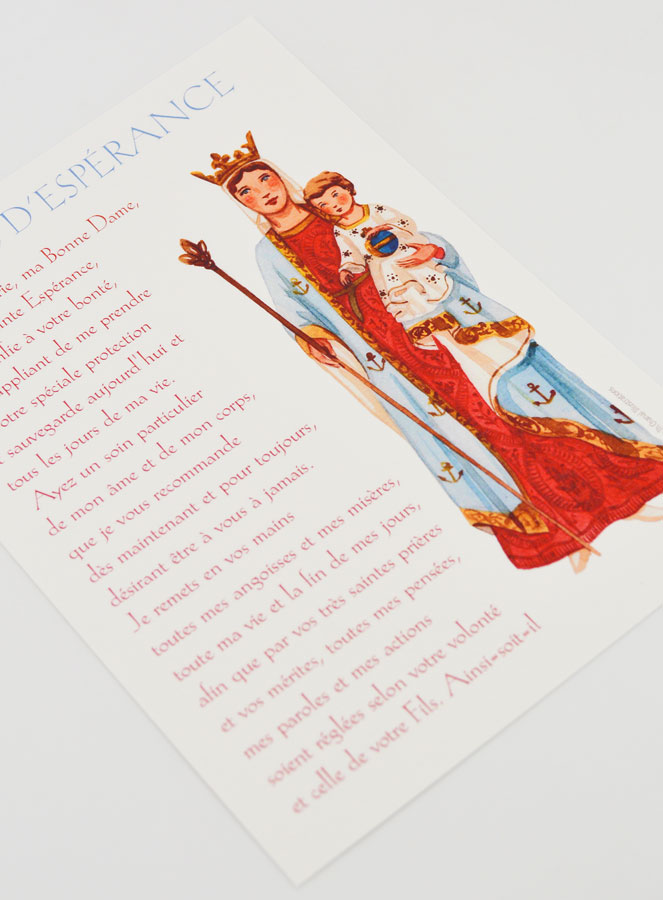 D'ESPÉRANCE
ma Bonne Dame,
Espérance,
à votre bonté,
de me prendre
votre spéciale protection
sauvegarde aujourd'hui et
tous les jours de ma vie.
Ayez un soin particulier
de mon âme et de mon corps,
que je vous recommande
dès maintenant et pour toujours,
désirant être à vous à jamais.
Je remets en vos mains
toutes mes angoisses et mes misères,
toute ma vie et la fin de mes jours,
afin que par vos très saintes prières
et vos mérites, toutes mes pensées,
mes paroles et mes actions
soient réglées selon votre volonté
et celle de votre Fils. Ainsi-soit-il